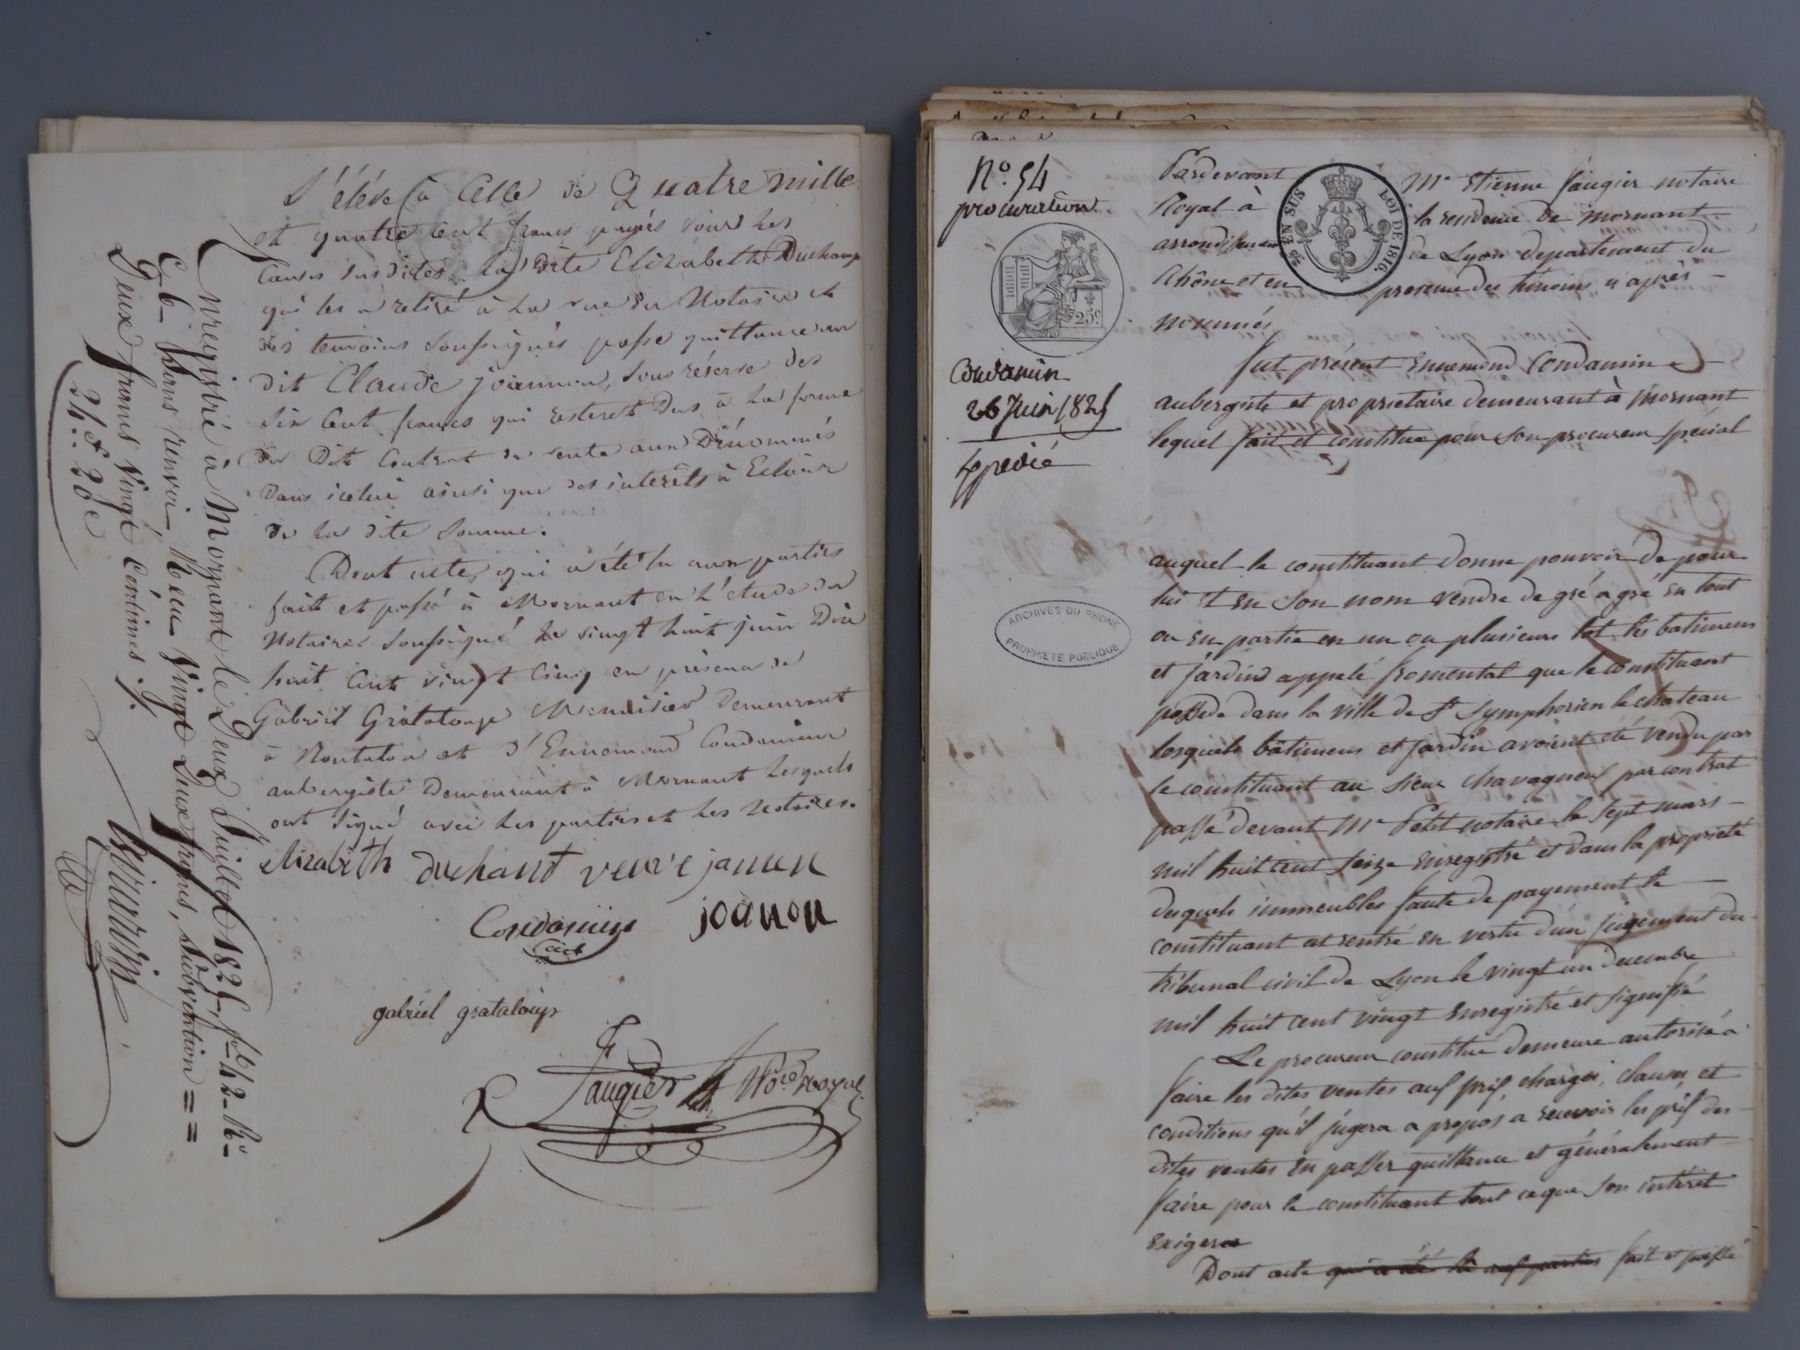 S'élève à Celle de Quatre mille
et quatre Cent francs payés pour les
Causes susdites la dite Elizabeth Duchamp
qui les a retiré à la vue du Notaire et
des temoins Soussignés passe quittance au
dit Claude joannon, sous réserve des
Six Cent francs qui resteret Dus à la forme
du Dit Contrat de vente aux Dénomés
Dans icelui ainsi que des interêts à Echoir
de la dite Somme.
Dont acte, qui a été lu aux parties
fait et passé à Mornant en l'étude du
Notaire Soussigné le vingt huit juin Dix
huit Cent vingt Cinq en présence de
Gabriel Grataloup Menuisier Demeurant
à Rontalon et d'Ennemond Condamin
aubergiste Demeurant à Mornant lesquels
ont Signé avec les parties et les Notaires.
elizabeth duchant veuve janen
Condamin joanon
gabriel grataloup
Faugier Nore Royal
Enregistré à Mornant le Deux Juillet 1825 fo 42 Ro
C. 6 sans renvoi Reçu Vingt Deux francs, subvention =
Deux francs Vingt Centimes.
24f 20c
No 54
procuration.
25c
Condamin
26 Juin 1825
Expedié
ARCHIVES DU RHONE
PROPRIETE PUBLIQUE
EN SUS LOI DE 1816.
Pardevant Me Etienne faugier notaire
Royal à la residence de Mornant
arrondissement de Lyon departement du
Rhône et en presence des témoins ci après
nommés
fut présent Ennemond Condamin
aubergiste et proprietaire demeurant à Mornant
lequel fait et constitue pour son procureur spécial
auquel le constituant donne pouvoir de pour
lui et en son nom vendre de gré a gré en tout
ou en partie en un ou plusieurs lot les batimens
et jardins appelé fromental que le constituant
possede dans la ville de St Symphorien le chateau
lesquels bâtimens et jardin avoient été vendu par
le constituant au sieur chavagneux par contrat
passé devant Me Petit notaire le Sept mars
mil huit cent seize enregistré et dans la propriété
desquels immeubles faute de payement le
constituant est rentré en vertu d'un jugement du
tribunal civil de Lyon le vingt un decembre
mil huit cent vingt enregistré et signifié
Le procureur constitué demeure autorisé à
faire les dites ventes aux prix, charges, clauses et
conditions qu'il jugera a propos à recevoir les prix des
dites ventes en passer quittance et généralement
faire pour le constituant tout ce que son intérêt
exigera
Dont acte qui a été lu aux parties fait et passé